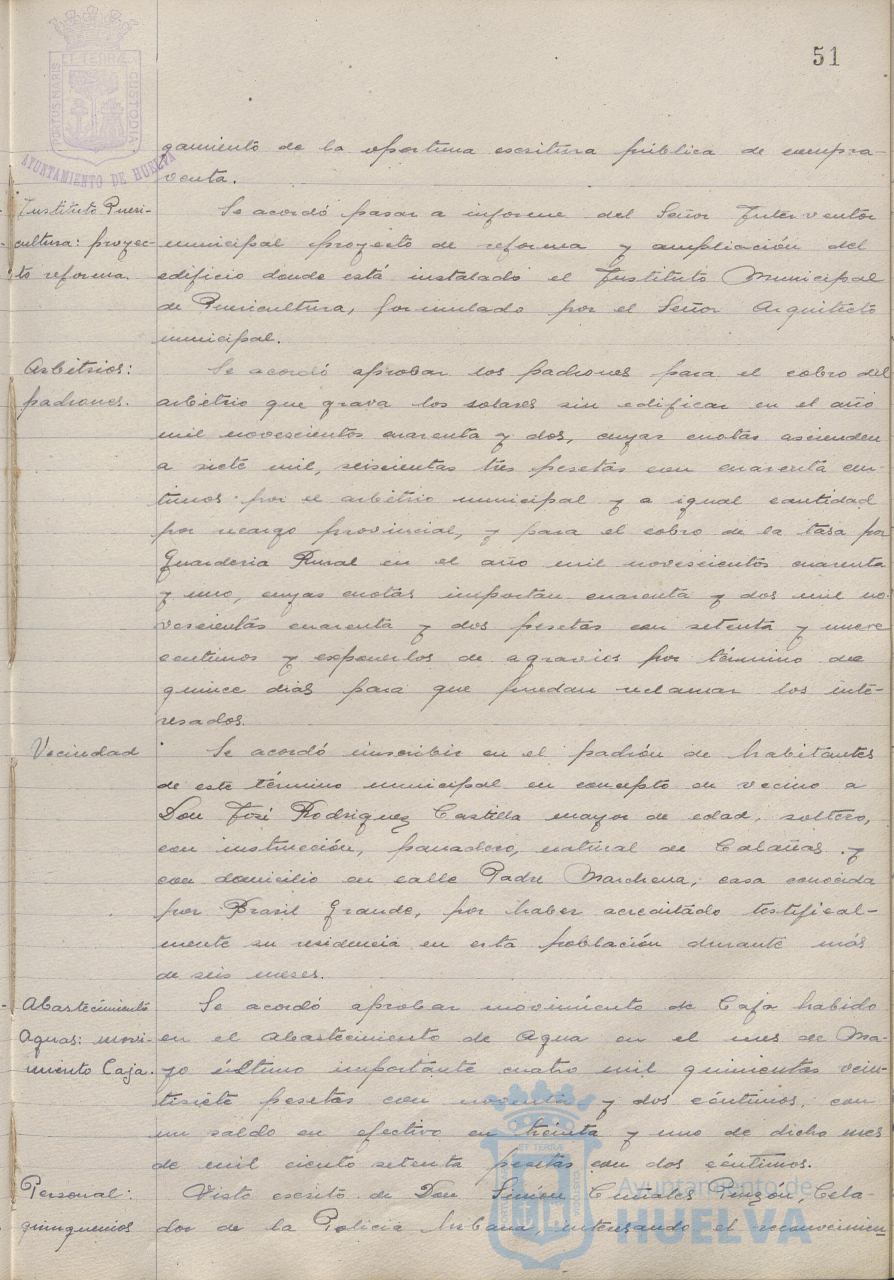 51
PORTUS MARIS ET TERRAE CUSTODIA
AYUNTAMIENTO DE HUELVA
gamiento de la oportuna escritura pública de compra-
venta.
Instituto Pueri-
cultura: proyec-
to reforma.
Se acordó pasar a informe del Señor Interventor
municipal proyecto de reforma y ampliación del
edificio donde está instalado el Instituto Municipal
de Puericultura, formulado por el Señor Arquitecto
municipal.
Arbitrios:
padrones.
Se acordó aprobar los padrones para el cobro del
arbitrio que grava los solares sin edificar en el año
mil novescientos cuarenta y dos, cuyas cuotas ascienden
a siete mil, seiscientas tres pesetas con cuarenta cen-
timos por el arbitrio municipal y a igual cantidad
por recargo provincial, y para el cobro de la tasa por
Guarderia Rural en el año mil novescientos cuarenta
y uno, cuyas cuotas importan cuarenta y dos mil no-
vescientas cuarenta y dos pesetas con setenta y nueve
centimos y exponerlos de agravios por término de
quince dias para que puedan reclamar los inte-
resados.
Vecindad
Se acordó inscribir en el padrón de habitantes
de este término municipal en concepto de vecino a
Don José Rodriguez Castilla mayor de edad, soltero,
con instrucción, panadero, natural de Calañas y
con domicilio en calle Padre Marchena, casa conocida
por Brasil Grande, por haber acreditado testifical-
mente su residencia en esta población durante más
de seis meses.
Abastecimiento
Aguas: movi-
miento Caja.
Se acordó aprobar movimiento de Caja habido
en el Abastecimiento de Agua en el mes de Ma-
yo último importante cuatro mil quinientas vein-
tisiete pesetas con noventa y dos céntimos, con
un saldo en efectivo en treinta y uno de dicho mes
de mil ciento setenta pesetas con dos céntimos.
Personal:
quinquenios
Visto escrito de Don Simón Pinzón, Cela-
dor de la Policia Urbana, interesando el reconocimien-
Ayuntamiento de
HUELVA